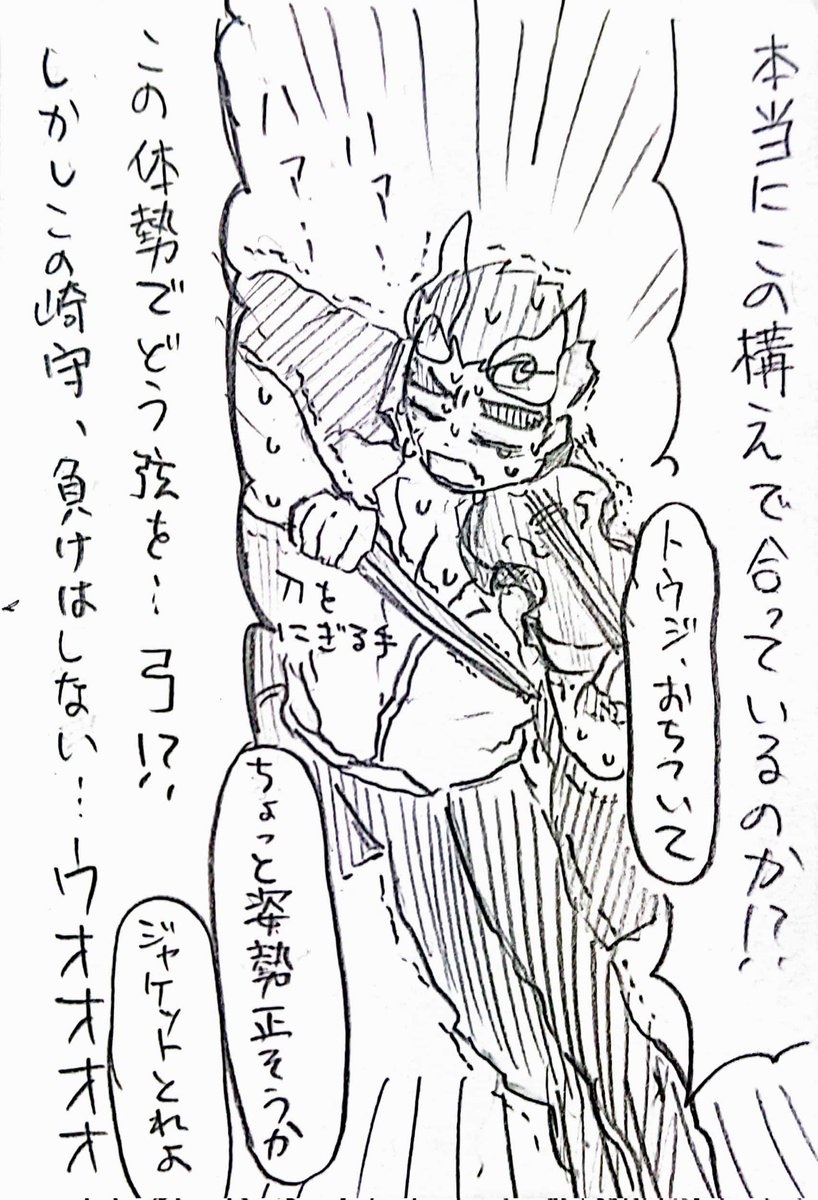 本当にこの構えで合っているのか!?
トウジ、おちついて
ハァー
ハァー
刀を
にぎる手
ちょっと姿勢正そうか
ジャケットとれよ
この体勢でどう弦を… 弓!?
しかしこの崎守、負けはしない…ウオオオオ